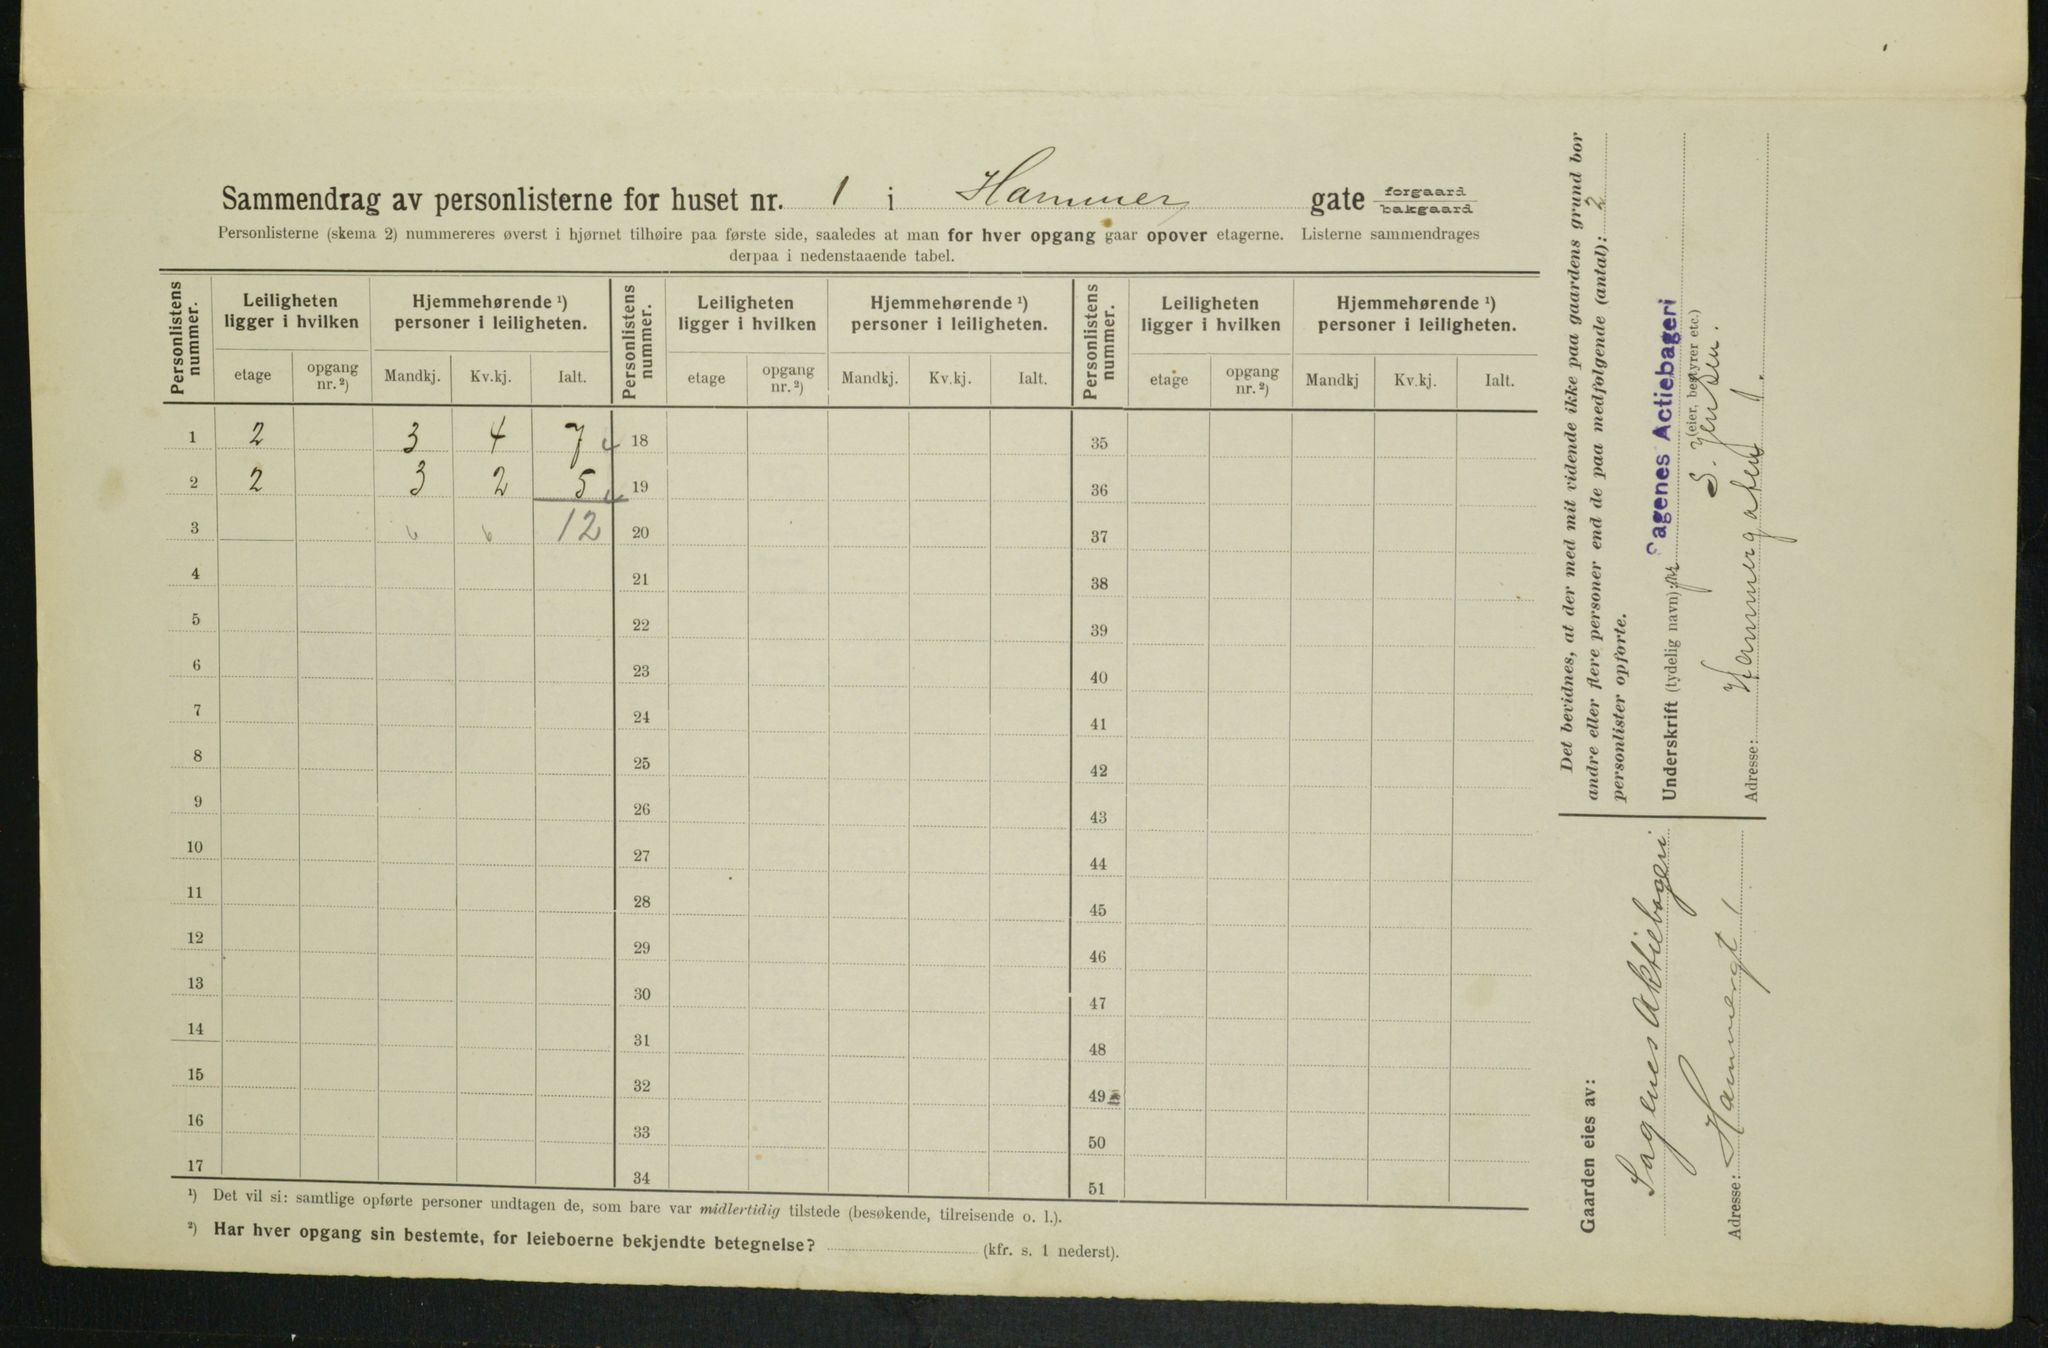 Sammendrag av personlisterne for huset nr. 1 i Hammer gate forgaard bakgaard
Personlisterne (skema 2) nummereres øverst i hjørnet tilhøire paa første side, saaledes at man for hver opgang gaar opover etagerne. Listerne sammendrages
derpaa i nedenstaaende tabel.
Personlistens nummer. Leiligheten ligger i hvilken Hjemmehørende ¹) personer i leiligheten. Personlistens nummer. Leiligheten ligger i hvilken Hjemmehørende ¹) personer i leiligheten. Personlistens nummer. Leiligheten ligger i hvilken Hjemmehørende ¹) personer i leiligheten.
etage opgang nr. ²) Mandkj. Kv.kj. Ialt. etage opgang nr. ²) Mandkj. Kv.kj. Ialt. etage opgang nr. ²) Mandkj Kv.kj. Ialt.
1 2 3 4 7 18 35
2 2 3 2 5 19 36
3 6 6 12 20 37
4 21 38
5 22 39
6 23 40
7 24 41
8 25 42
9 26 43
10 27 44
11 28 45
12 29 46
13 30 47
14 31 48
15 32 49
16 33 50
17 34 51
¹) Det vil si: samtlige opførte personer undtagen de, som bare var midlertidig tilstede (besøkende, tilreisende o. l.).
²) Har hver opgang sin bestemte, for leieboerne bekjendte betegnelse? (kfr. s. 1 nederst).
Det bevidnes, at der med mit vidende ikke paa gaardens grund bor
andre eller flere personer end de paa medfølgende (antal): 2
personlister opførte.
Underskrift (tydelig navn): pr Sagenes Actiebageri
(eier, bestyrer etc.)
S. Jensen.
Adresse: Hammergaten 1.
Gaarden eies av:
Sagenes Aktiebageri
Adresse: Hammergt 1